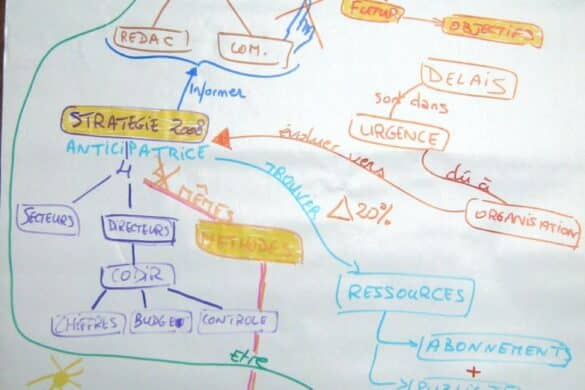 FUTUR
OBJECTIFS
REDAC
COM.
DELAIS
Informer
sont dans
STRATEGIE 2008
URGENCE
évoluer vers
ANTICIPATRICE
TROUVER
dû à
4
MÊMES
△20%
SECTEURS
DIRECTEURS
METHODES
ORGANISATION
CODIR
RESSOURCES
CHIFFRES
BUDGET
CONTROLE
ABONNEMENTS
Etre
+